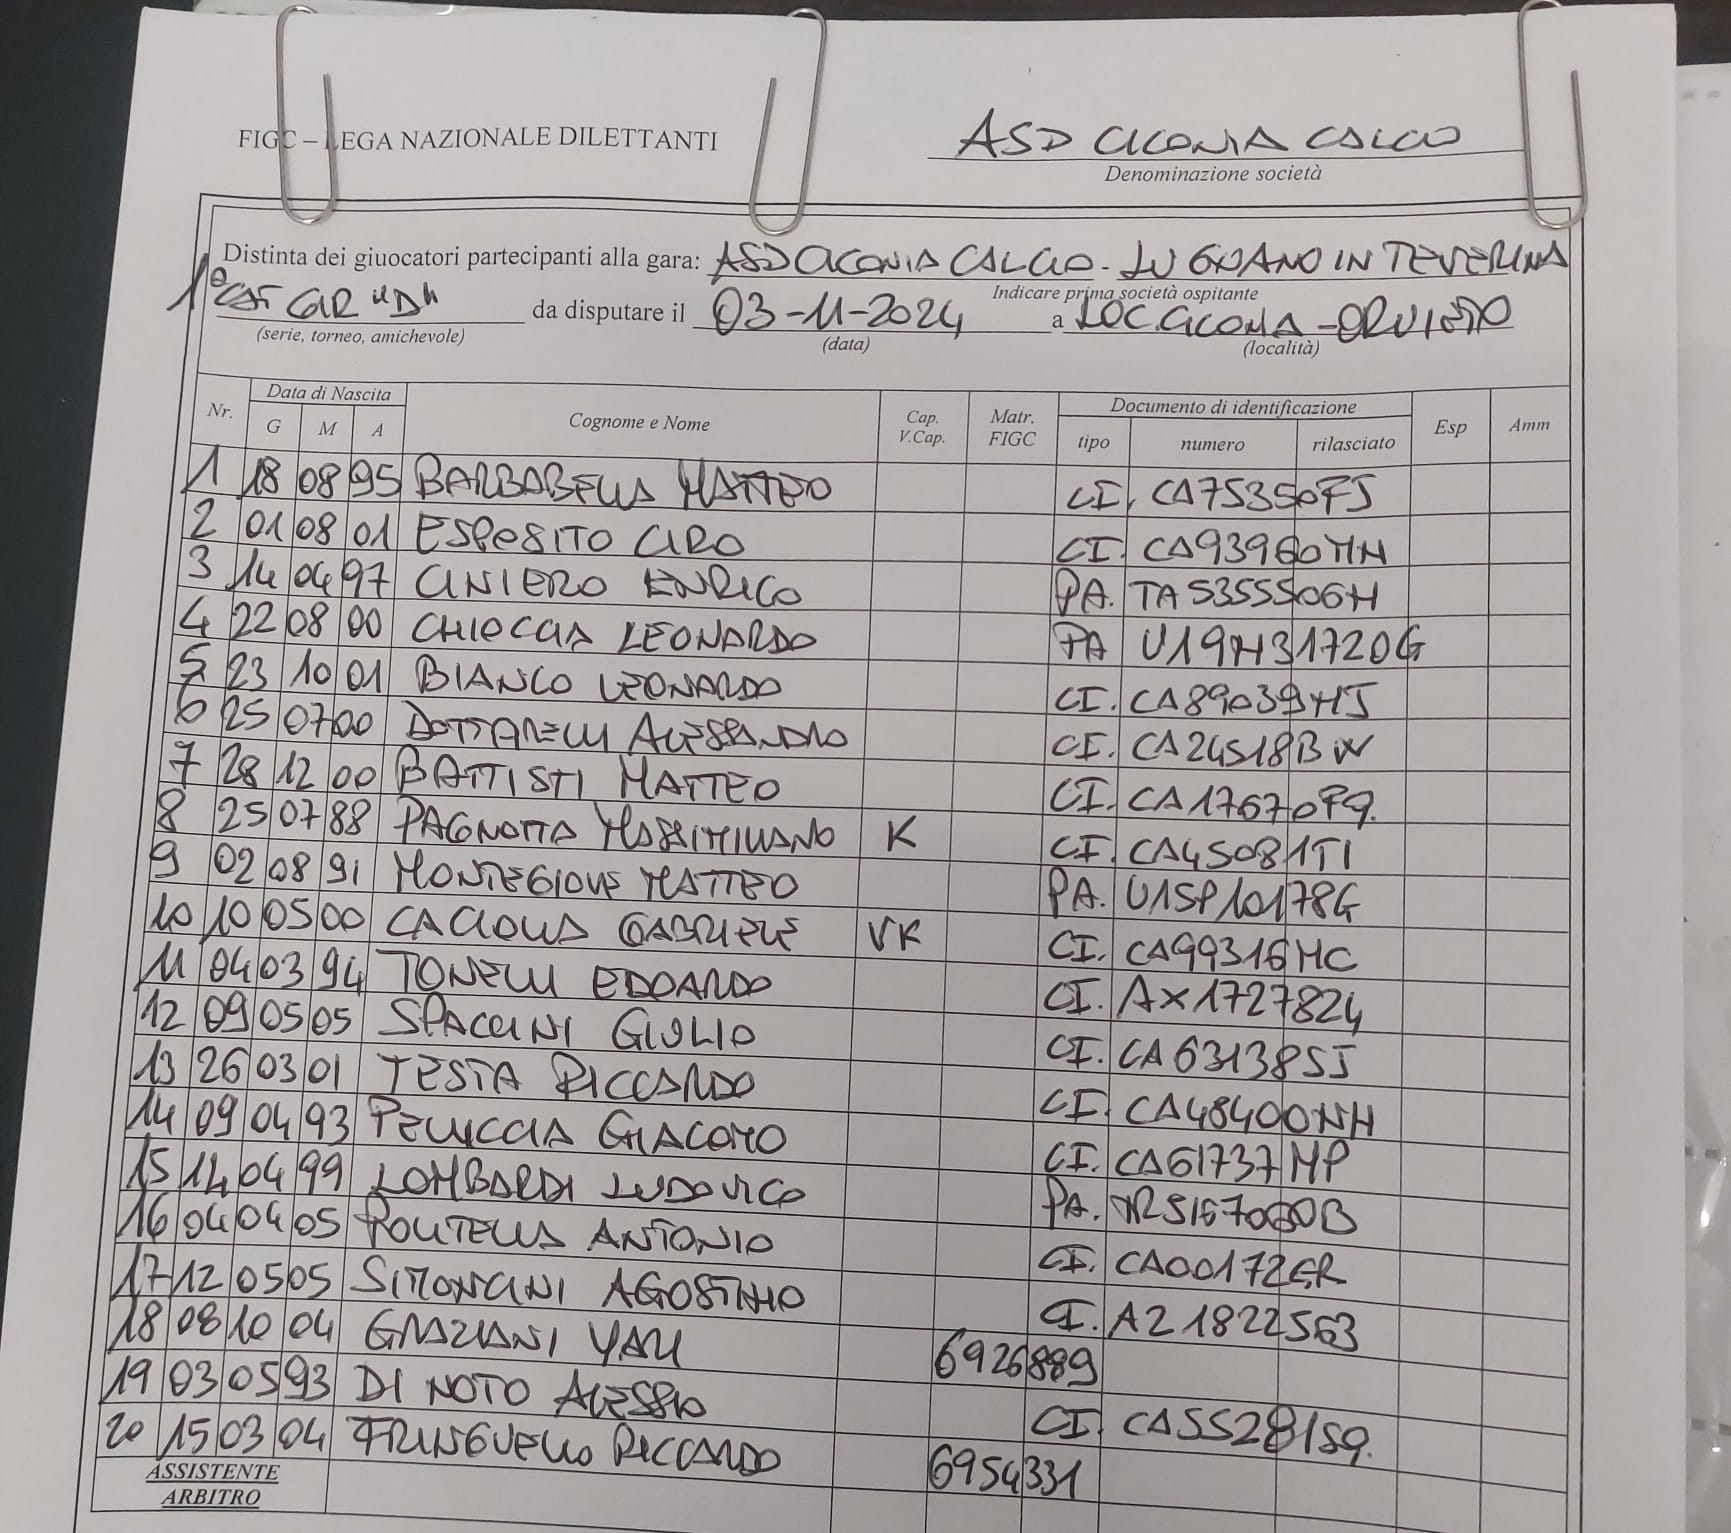 FIGC – LEGA NAZIONALE DILETTANTI
ASD CICONIA CALCIO
Denominazione società
Distinta dei giuocatori partecipanti alla gara: ASD CICONIA CALCIO - LUGNANO IN TEVERINA
Indicare prima società ospitante
1ª CAT GIR "D" da disputare il 03-11-2024 a LOC. CICONIA - ORVIETO
(serie, torneo, amichevole) (data) (località)
Nr. Data di Nascita Cognome e Nome Cap. V.Cap. Matr. FIGC Documento di identificazione Esp Amm
G M A tipo numero rilasciato
1 18 08 95 BARBABELLA MATTEO CI. CA75350FJ
2 01 08 01 ESPOSITO CIRO CI. CA93960MN
3 14 04 97 CINIERO ENRICO PA. TA5355506H
4 22 08 00 CHIOCCIA LEONARDO PA U19H31720G
5 23 10 01 BIANCO LEONARDO CI. CA89039HJ
6 25 07 00 DOTTARELLI ALESSANDRO CI. CA24518BW
7 28 12 00 BATTISTI MATTEO CI. CA17670FQ.
8 25 07 88 PAGNOTTA MASSIMILIANO K CI. CA45081TI
9 02 08 91 MONTEGIOVE MATTEO PA. U15P10178G
10 10 05 00 CACIOLLA GABRIELE VK CI. CA99316MC
11 04 03 94 TONELLI EDOARDO CI. AX1727824
12 09 05 05 SPACCINI GIULIO CI. CA63138SJ
13 26 03 01 TESTA RICCARDO CI. CA48400NH
14 09 04 93 PELLICCIA GIACOMO CI. CA61737MP
15 14 04 99 LOMBARDI LUDOVICO PA.
16 04 04 05 POLITELLA ANTONIO CI. CA00172ER
17 12 05 05 SIMONCINI AGOSTINO CI. AZ1822563
18 08 10 04 GRAZIANI YALI 6926889
19 03 05 93 DI NOTO ALESSIO CI. CA55281SQ.
20 15 03 04 FRINGUELLO RICCARDO 6954331
ASSISTENTE
ARBITRO